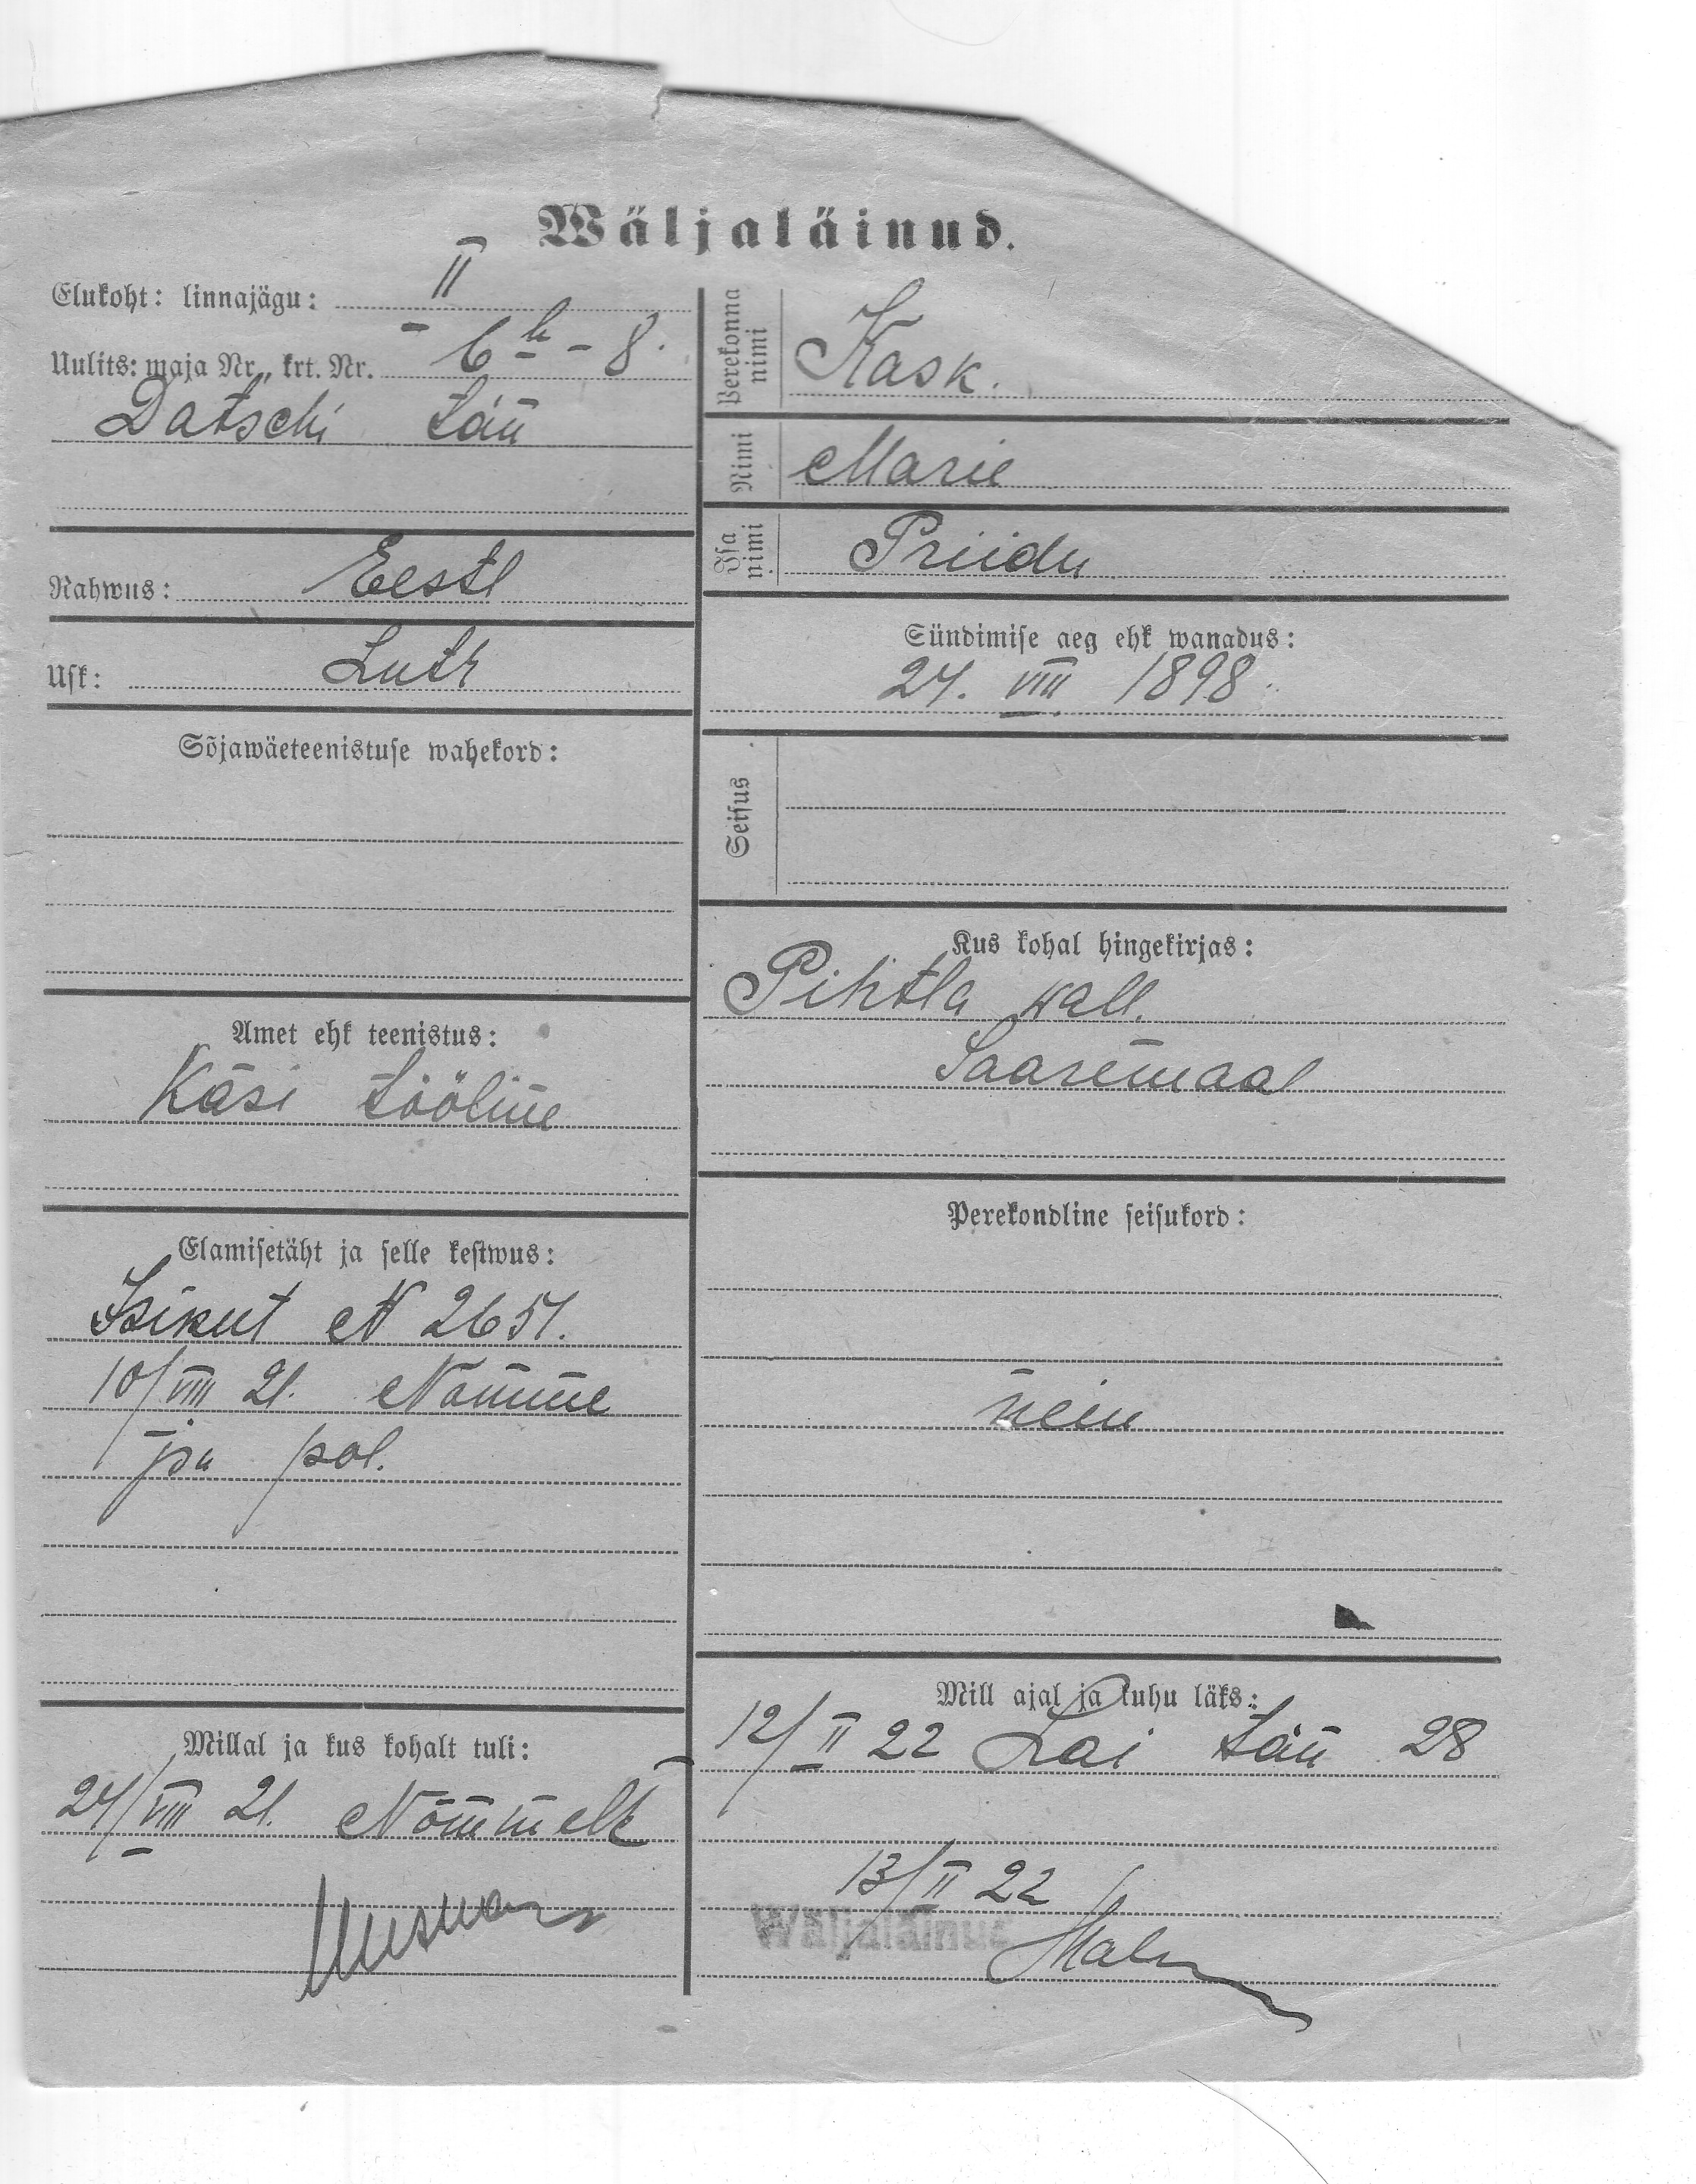 Wäljaläinud.
Elukoht: linnajägu: II
Uulits: maja Nr., krt. Nr. 6 b - 8.
Datschi tän
Rahwus: Eesti
Usk: Luth
Sõjawäeteenistuse wahekord:
Amet ehk teenistus:
Käsi tööline
Elamisetäht ja selle kestwus:
Isikut N 2651.
10/VIII 21. Nõmme
jsk pol.
Millal ja kus kohalt tuli:
24/VIII 21. Nõmmelt
Perekonna nimi Kask.
Nimi Marie
Isa nimi Priidu
Sündimise aeg ehk wanadus:
24. VIII 1898.
Seisus
Kus kohal hingekirjas:
Pihtla wall.
Saaremaal
Perekondline seisukord:
nein
Mill ajal ja kuhu läks:
12/II 22 Lai tän 28
13/II 22
Wäljaläinud